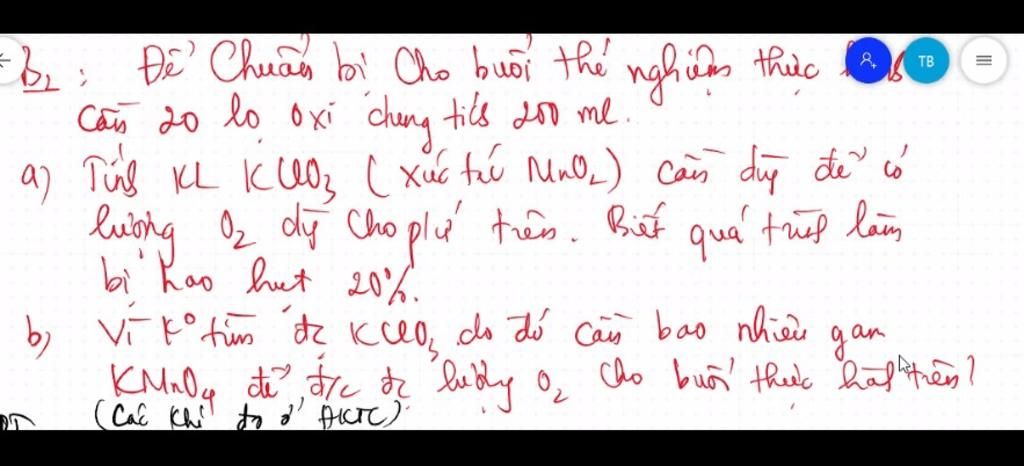 B₂ : Để Chuẩn bị Cho buổi thí nghiệm thực
Cần 20 lọ oxi dung tích 200 ml.
TB
a) Tính KL KClO₃ ( xúc tác MnO₂ ) cần dùng để có
lượng O₂ dùng Cho p/ứ trên. Biết quá trình làm
bị hao hụt 20%.
b) Vì k° tìm đc KClO₃ do đó cần bao nhiêu gam
KMnO₄ để đ/c đc lượng O₂ Cho buổi thực hành trên?
(Các khí đo ở ĐKTC)